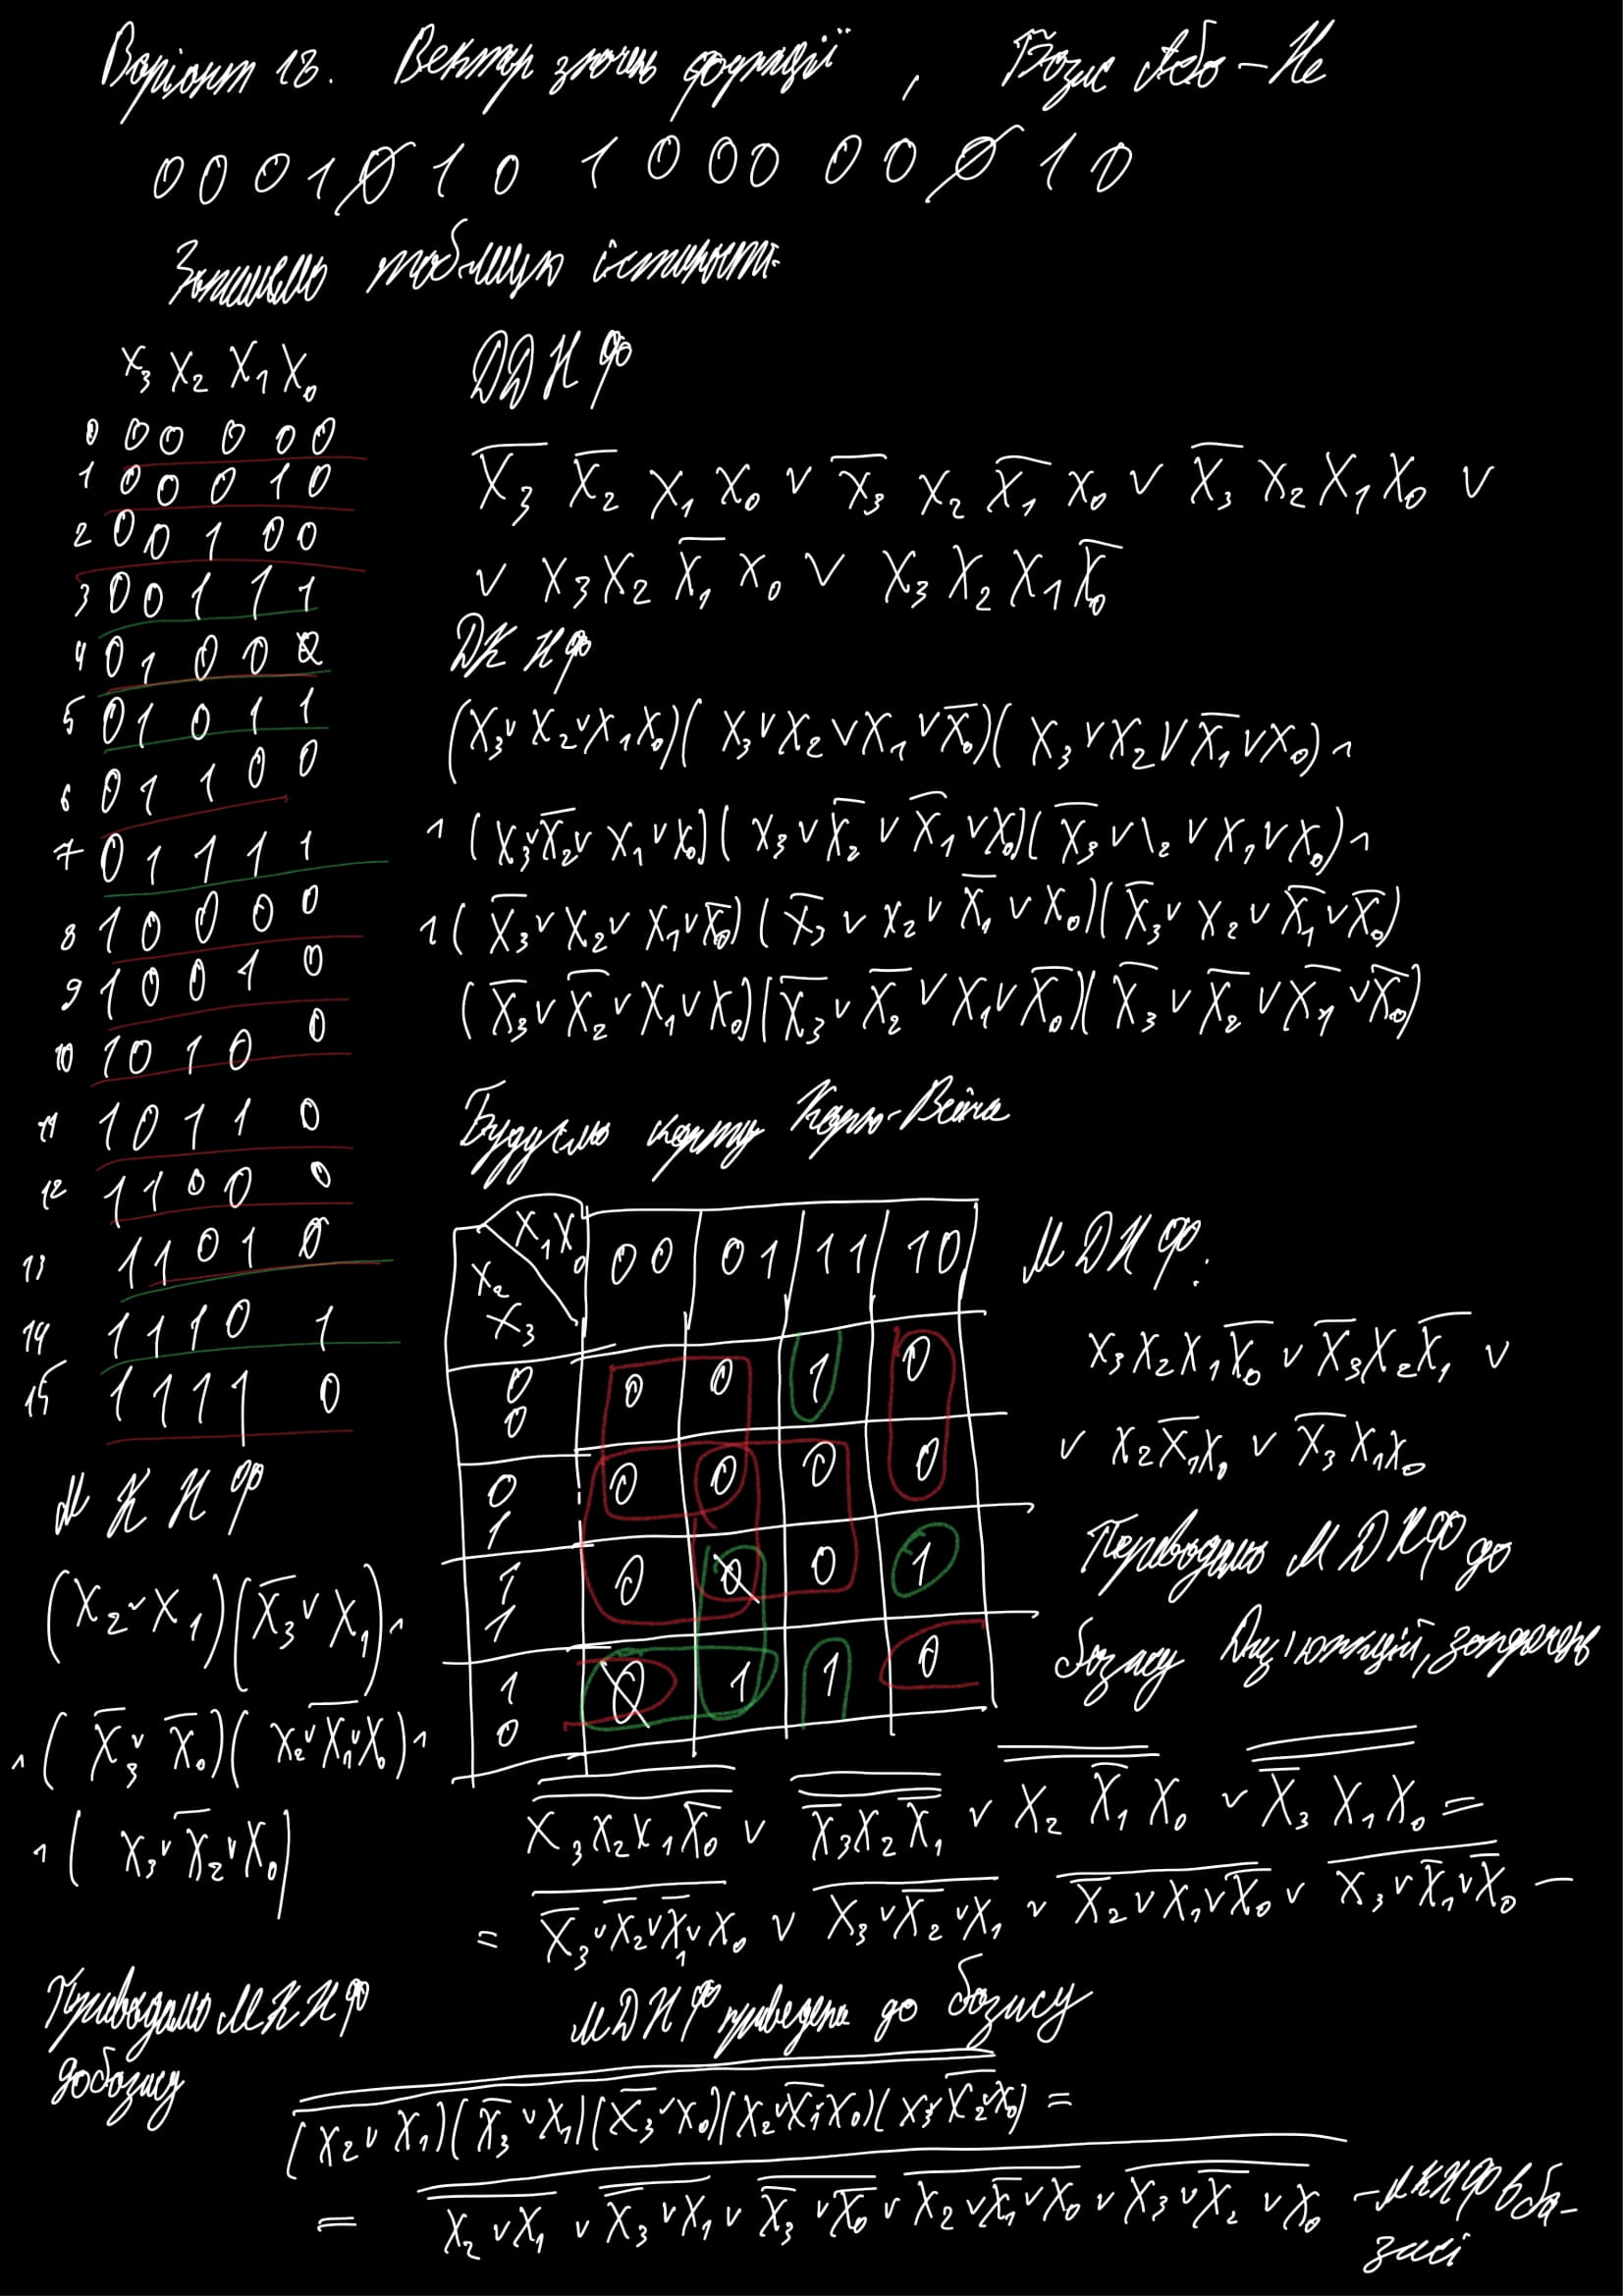 Варіант 18. Вектор значень функції, Базис Або-Не
0 0 0 1 Ø 1 0 1 0 0 0 0 0 Ø 1 0
Запишемо таблицю істиності
x₃ x₂ x₁ x₀
0 0 0 0 0 0
1 0 0 0 1 0
2 0 0 1 0 0
3 0 0 1 1 1
4 0 1 0 0 Ø
5 0 1 0 1 1
6 0 1 1 0 0
7 0 1 1 1 1
8 1 0 0 0 0
9 1 0 0 1 0
10 1 0 1 0 0
11 1 0 1 1 0
12 1 1 0 0 0
13 1 1 0 1 Ø
14 1 1 1 0 1
15 1 1 1 1 0
ДДНФ
X̅₃ X̅₂ X₁ X₀ ∨ X̅₃ X₂ X̅₁ X₀ ∨ X̅₃ X₂ X₁ X₀ ∨
∨ X₃ X₂ X̅₁ X₀ ∨ X₃ X₂ X₁ X̅₀
ДКНФ
(X₃ ∨ X₂ ∨ X₁ X₀)(X₃ ∨ X₂ ∨ X₁ ∨ X̅₀)(X₃ ∨ X₂ ∨ X̅₁ ∨ X₀) ∧
∧ (X₃ ∨ X̅₂ ∨ X₁ ∨ X₀)(X₃ ∨ X̅₂ ∨ X̅₁ ∨ X₀)(X̅₃ ∨ X₂ ∨ X₁ ∨ X₀) ∧
∧ (X̅₃ ∨ X₂ ∨ X₁ ∨ X̅₀)(X̅₃ ∨ X₂ ∨ X̅₁ ∨ X₀)(X̅₃ ∨ X₂ ∨ X̅₁ ∨ X̅₀)
(X̅₃ ∨ X̅₂ ∨ X₁ ∨ X₀)(X̅₃ ∨ X̅₂ ∨ X₁ ∨ X̅₀)(X̅₃ ∨ X̅₂ ∨ X̅₁ ∨ X̅₀)
Будуємо карту Карно-Вейча
X₁X₀ X₂ X₃ 00 01 11 10
0 0 0 0 1 0
0 1 0 0 0 0
1 1 0 Ø 0 1
1 0 Ø 1 1 0
МДНФ:
X₃X₂X₁X̅₀ ∨ X̅₃X₂X̅₁ ∨
∨ X₂X̅₁X₀ ∨ X̅₃X₁X₀
Переводимо МДНФ до
базису Диз'юнкцій, заперечень
МКНФ
(X₂ ∨ X₁)(X̅₃ ∨ X₁) ∧
∧ (X̅₃ ∨ X̅₀)(X₂ ∨ X̅₁ ∨ X₀) ∧
∧ (X₃ ∨ X̅₂ ∨ X₀)
X₃X₂X₁X̅₀ ∨ X̅₃X₂X̅₁ ∨ X₂X̅₁X₀ ∨ X̅₃X₁X₀ =
= X̅₃ ∨ X̅₂ ∨ X̅₁ ∨ X₀ ∨ X₃ ∨ X̅₂ ∨ X₁ ∨ X̅₂ ∨ X₁ ∨ X̅₀ ∨ X₃ ∨ X̅₁ ∨ X̅₀ —
МДНФ приведена до базису
Приводимо МКНФ
до базису
(X₂ ∨ X₁)(X̅₃ ∨ X₁)(X̅₃ ∨ X₀)(X₂ ∨ X̅₁ ∨ X₀)(X₃ ∨ X̅₂ ∨ X₀) =
= X₂ ∨ X₁ ∨ X̅₃ ∨ X₁ ∨ X̅₃ ∨ X̅₀ ∨ X₂ ∨ X̅₁ ∨ X₀ ∨ X₃ ∨ X̅₂ ∨ X₀ — МКНФ в ба-
зисі